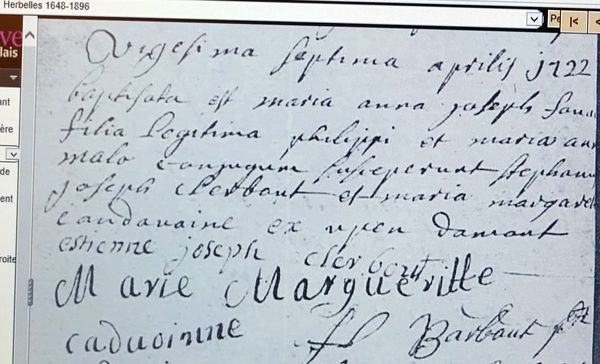 Herbelles 1648-1896
Pe
|<
ve
lais
ant
ère
de
ent
roite
Vigesima septima aprilis 1722
baptisata est maria anna joseph
filia legitima philippi et maria ann
malo conjugum susceperunt stephan
joseph clerbout et maria margare
caudavaine ex upen damont
estienne joseph clerbout
Marie Margueritte
caduoinne Barbaut